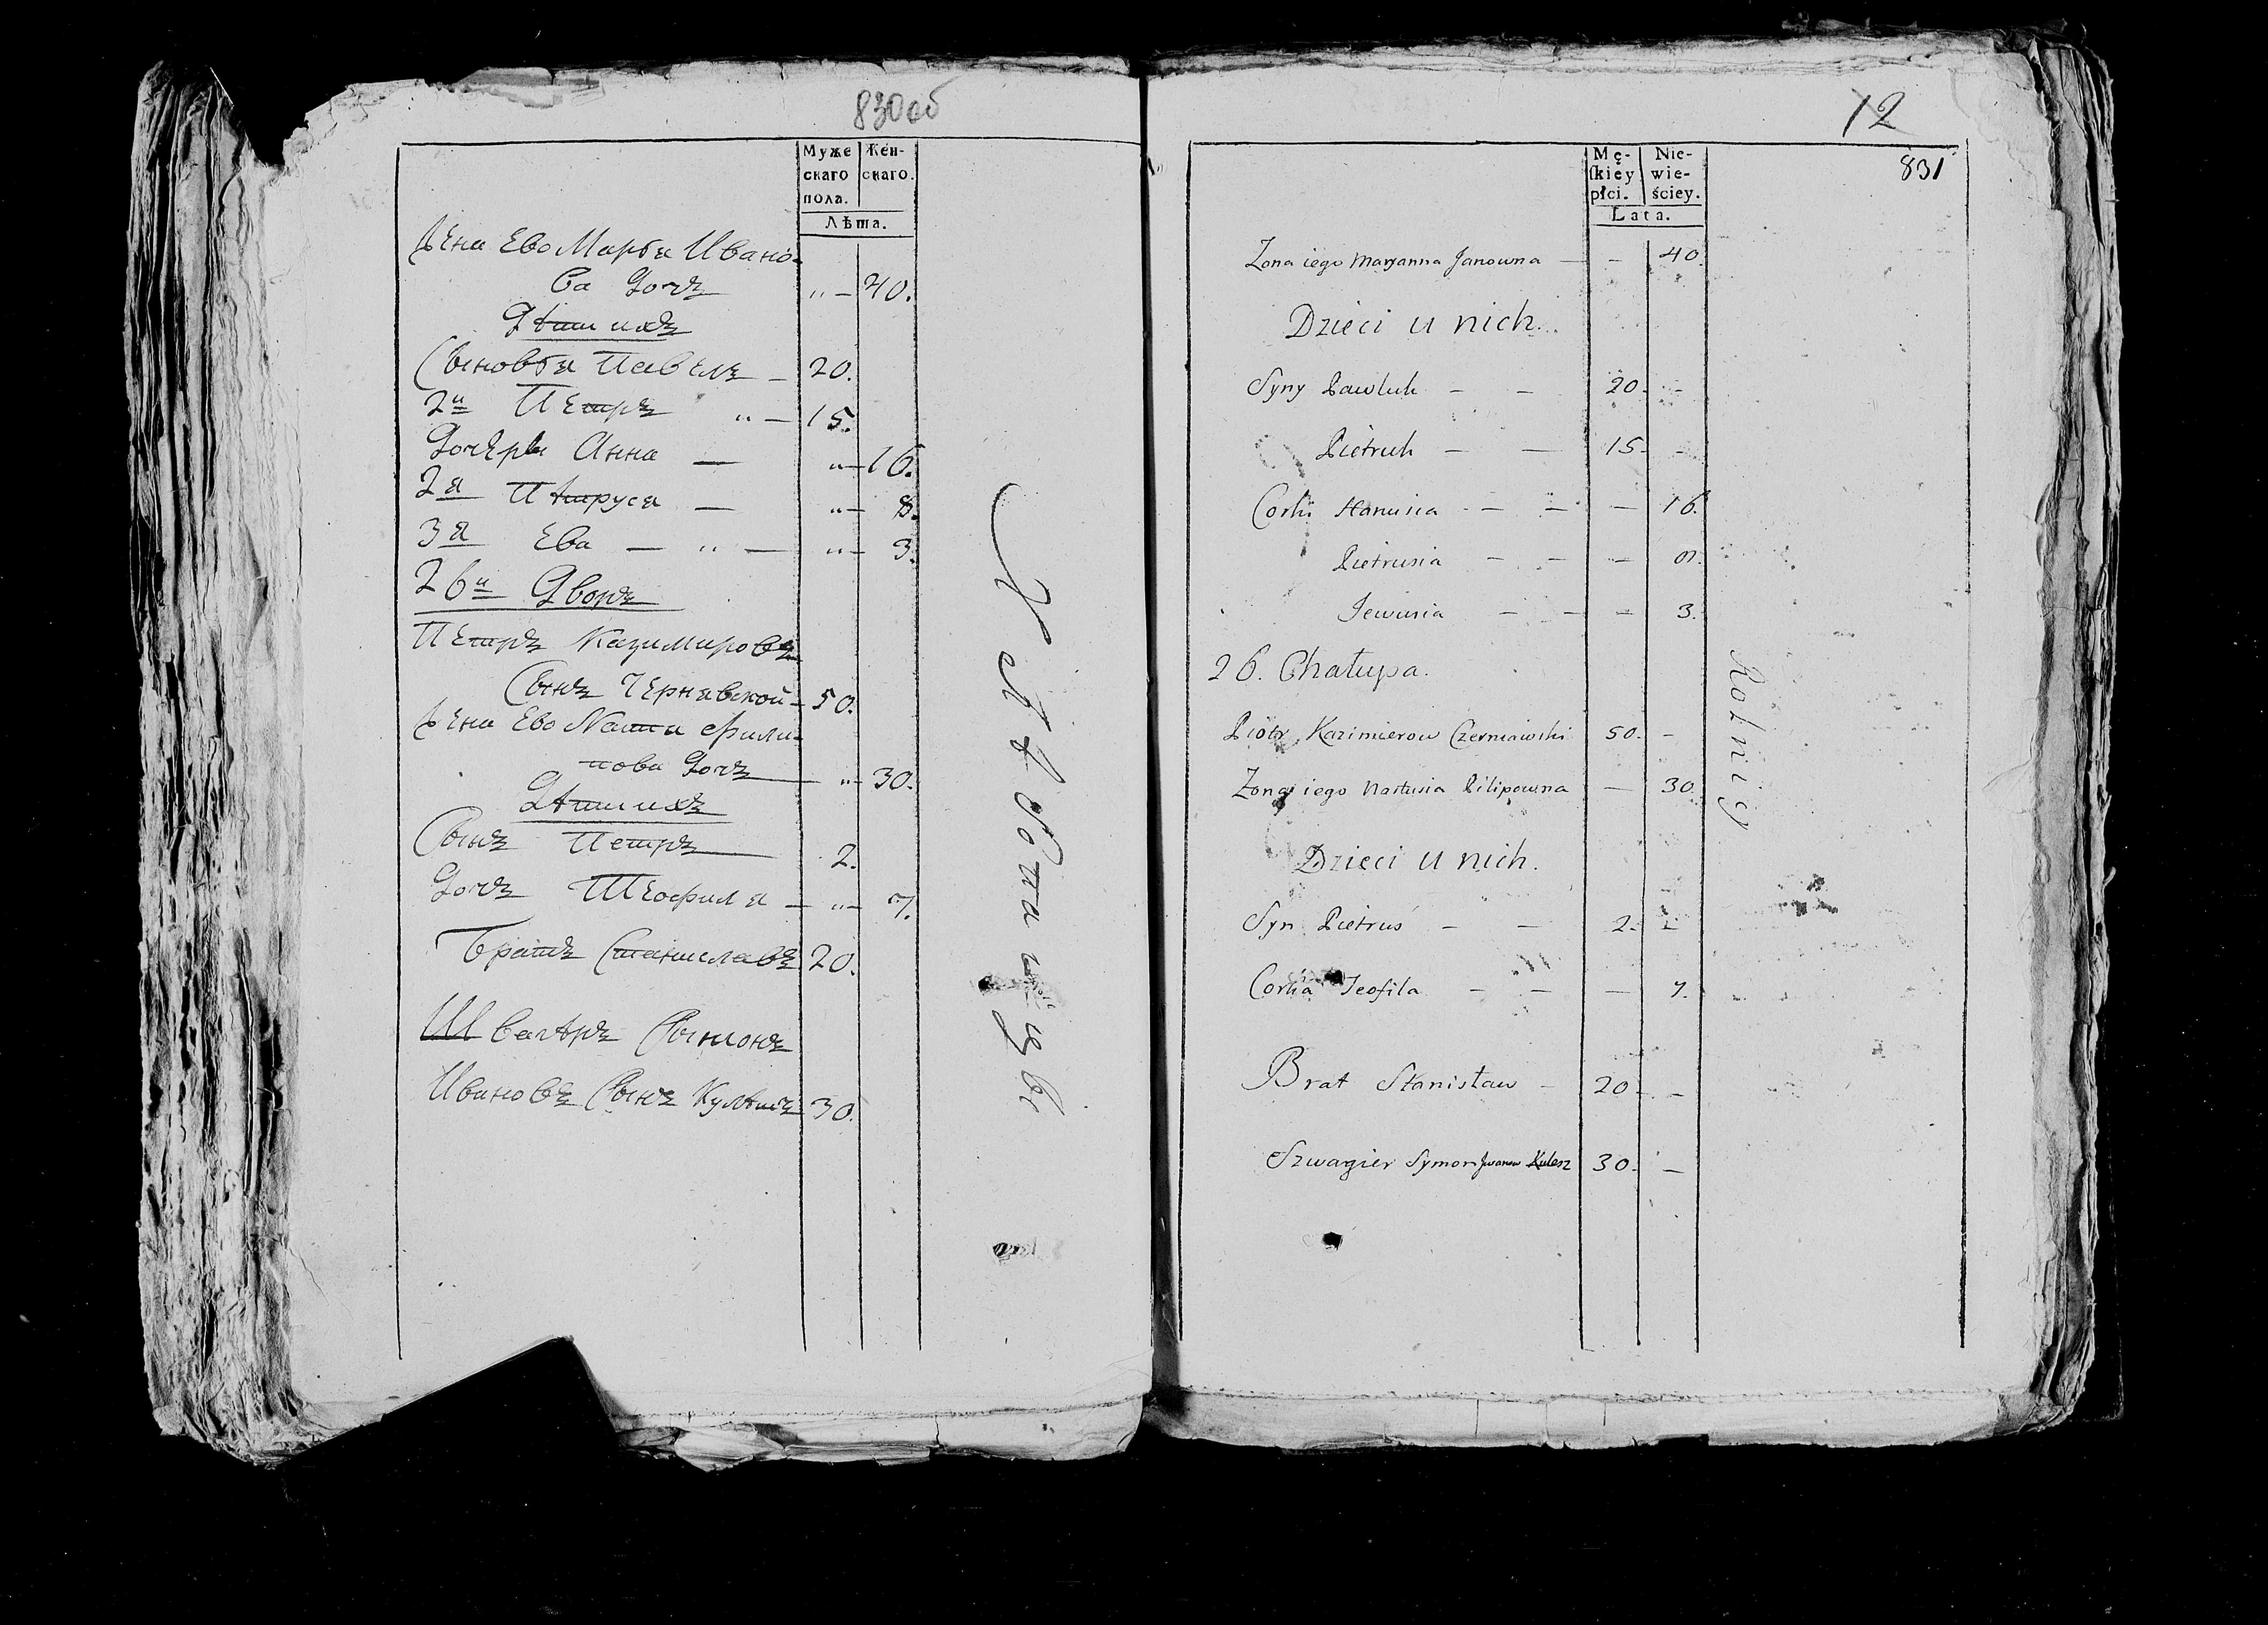 830об
Муже
скаго
пола.
Жен-
скаго.
Лѣта.
Жена Ево Марья Ивано-
ва Дочь „ — 40.
Дѣти ихъ
Сыновья Павелъ — 20.
2й Петръ „ — 15.
Дочери Анна — „ — 16.
2я Пѣтруся — „ — 8.
3я Ева — „ — „ — 3.
26й Дворъ
Петръ Казимировъ
Сынъ Чернявской — 50.
Жена Ево Настя Фили-
пова Дочь „ — 30.
Дѣти ихъ
Сынъ Петръ 2.
Дочь Теофиля — „ — 7.
Братъ Станиславъ 20.
Швагѣръ Сымонъ
Ивановъ Сынъ Кулѣшъ 30.
Хлѣбопашцы
12
831
Mę-
ſkiey
płci.
Nie-
wie-
ściey.
Lata.
Zona iego Maryanna Janowna — — 40.
Dzieci u nich.
Syny Pawluk — — 20. —
Pietruk — — 15. —
Corki Hanusia — — — 16.
Pietrusia — — — 8.
Jewusia — — — 3.
26. Chałupa.
Piotr Kazimierow Czerniawski 50. —
Zona iego Nastusia Pilipowna — 30.
Dzieci u nich.
Syn Pietruś — — 2. —
Corka Teofila — — — 7.
Brat Stanisław — 20. —
Szwagier Symon Jwanow Kulesz 30. —
Rolnicy